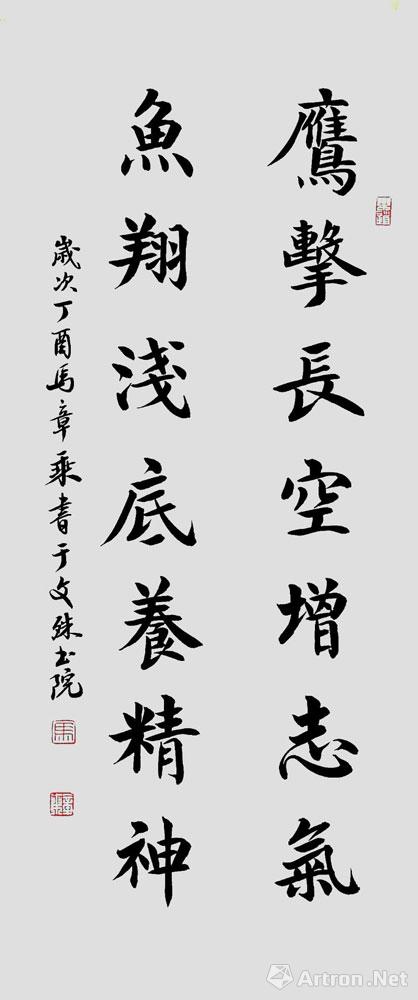 鷹擊長空增志氣
魚翔淺底養精神
歲次丁酉馬章乘書于文殊書院
Artron.Net